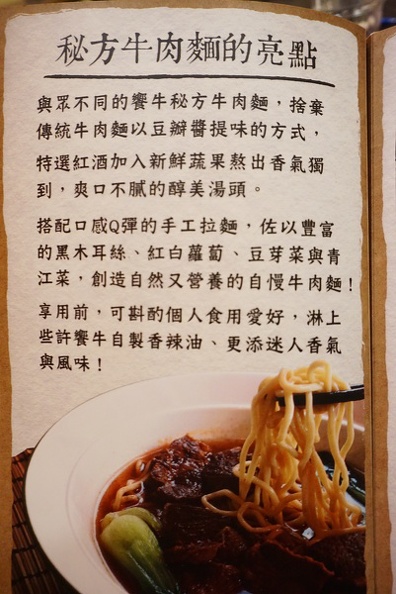 秘方牛肉麵的亮點
與眾不同的饗牛秘方牛肉麵，捨棄
傳統牛肉麵以豆瓣醬提味的方式，
特選紅酒加入新鮮蔬果熬出香氣獨
到，爽口不膩的醇美湯頭。
搭配口感Q彈的手工拉麵，佐以豐富
的黑木耳絲、紅白蘿蔔、豆芽菜與青
江菜，創造自然又營養的自慢牛肉麵！
享用前，可斟酌個人食用愛好，淋上
些許饗牛自製香辣油、更添迷人香氣
與風味！